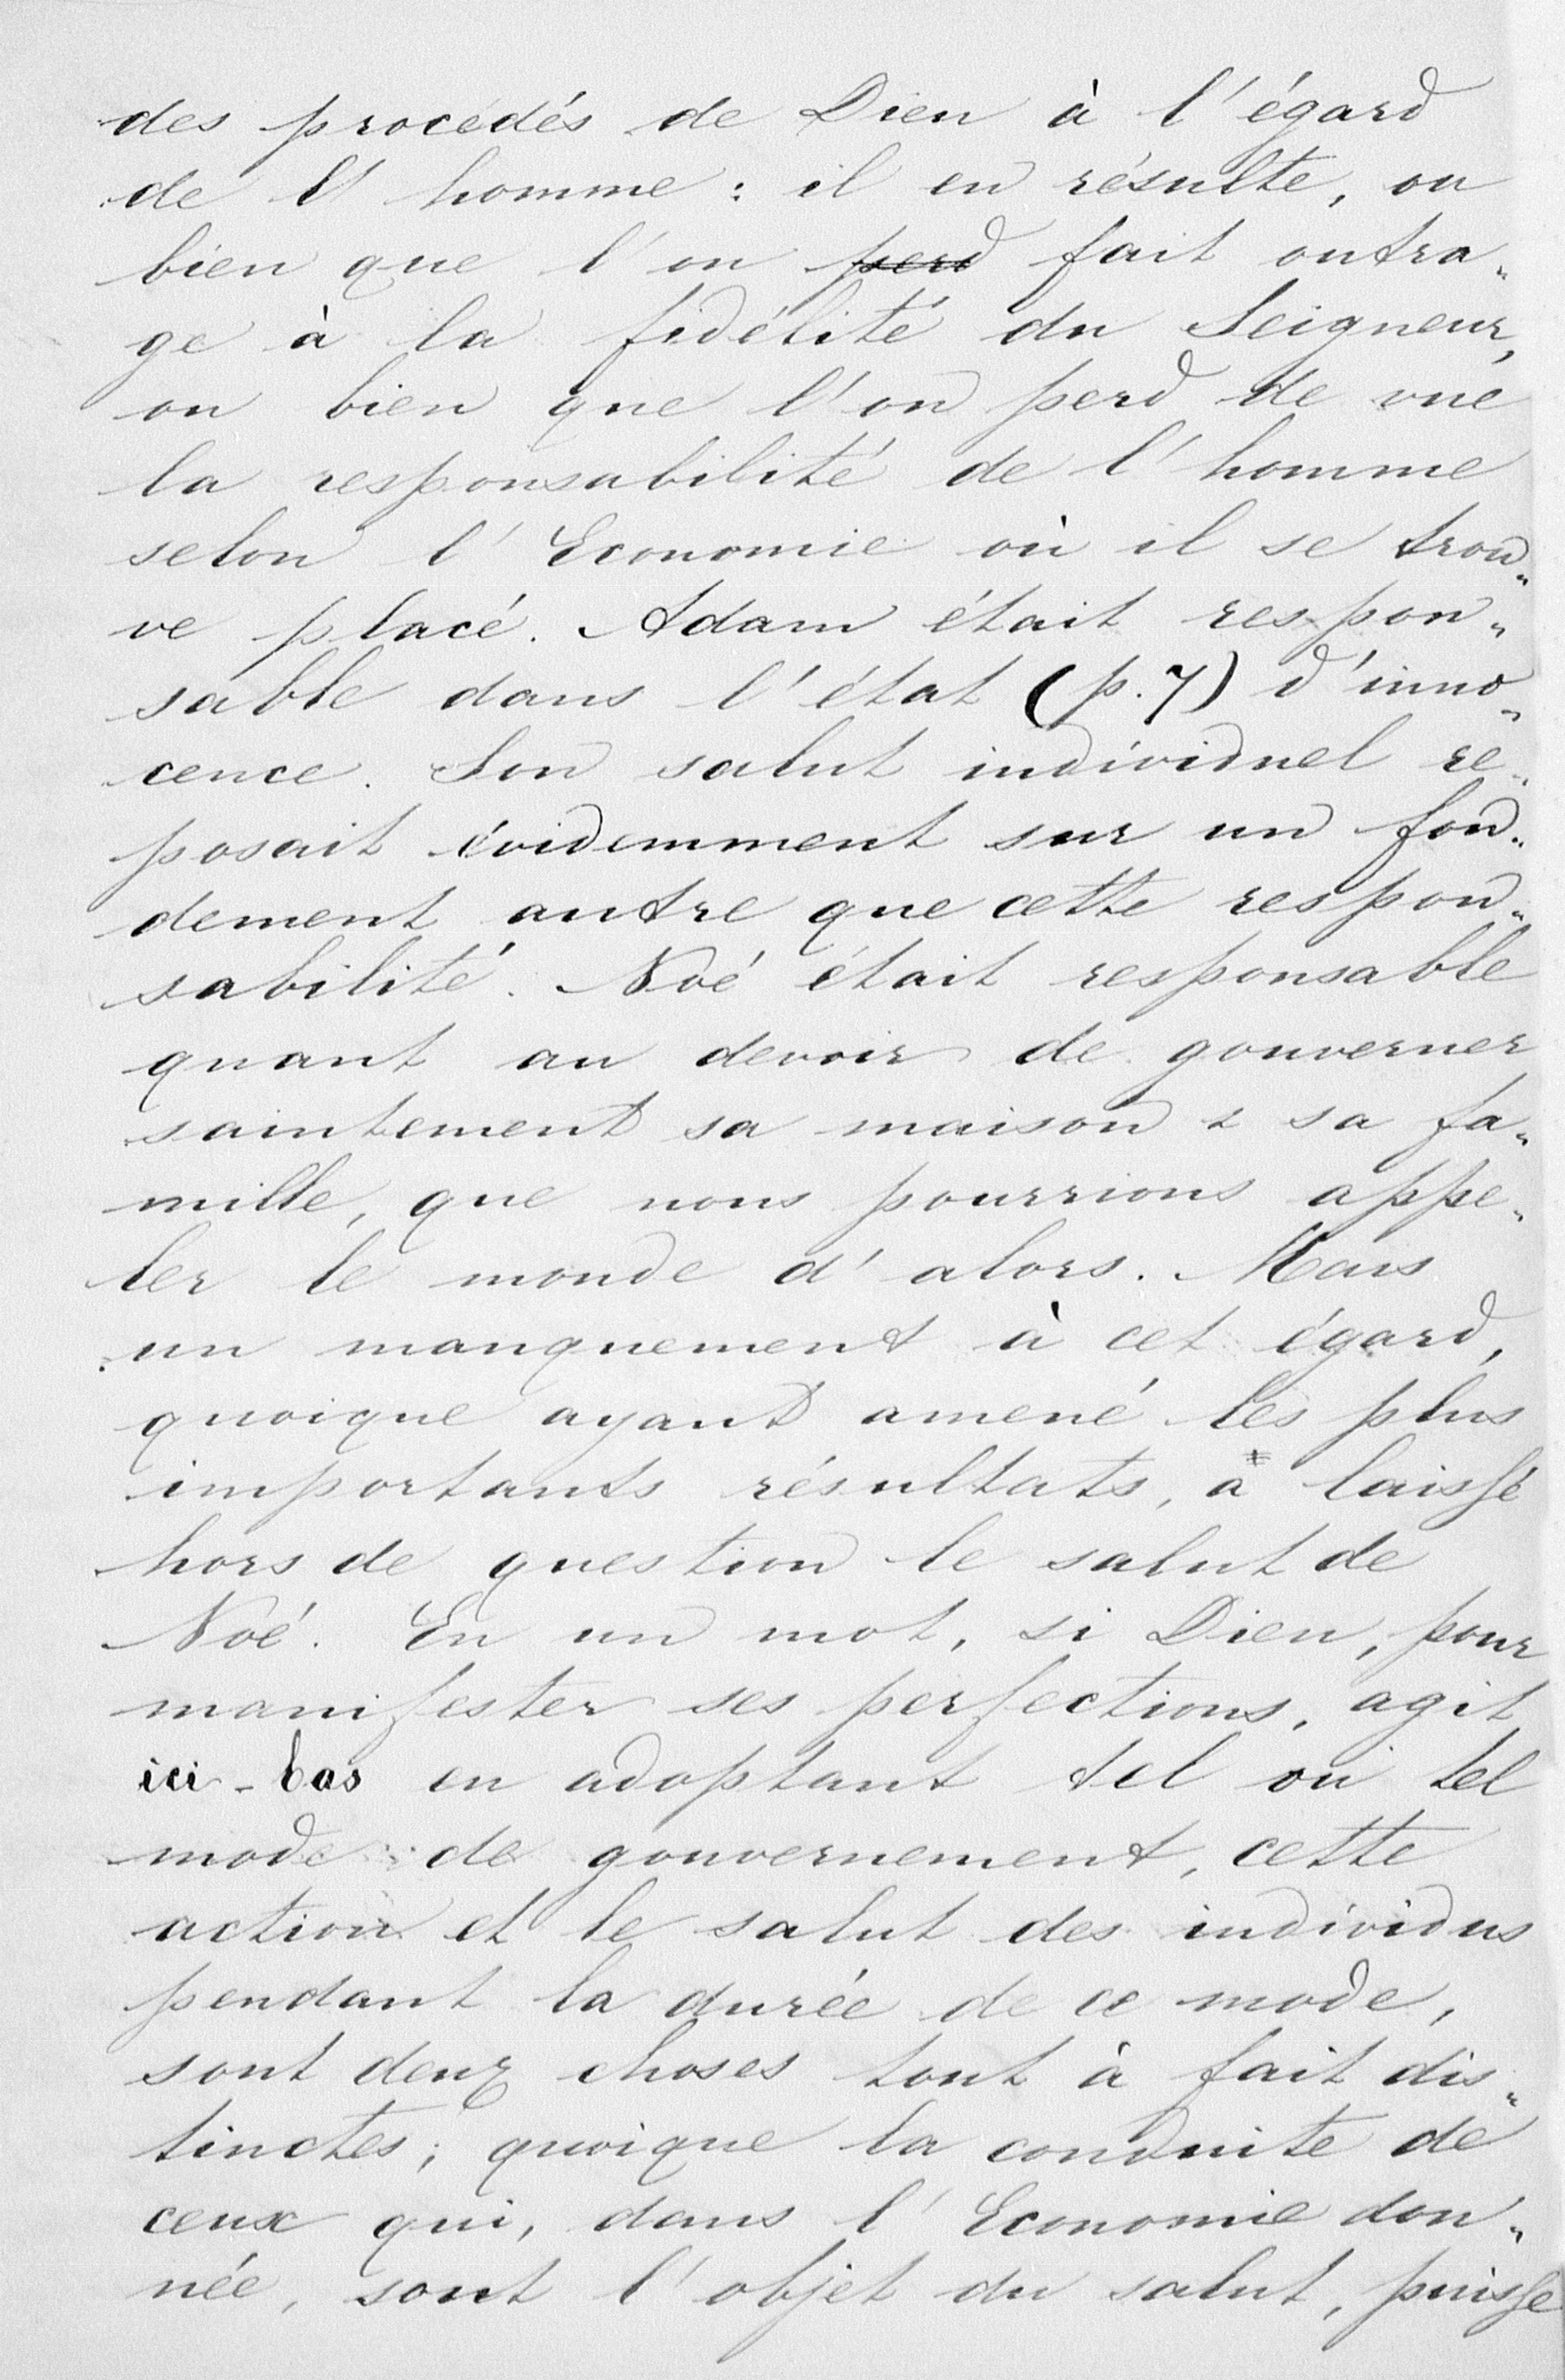 des procédés de Dieu à l'égard
de l'homme : il en résulte, ou
bien que l'on perd fait outra„
ge à la fidélité du Seigneur,
ou bien que l'on perd de vue
la responsabilité de l'homme
selon l'Economie où il se trou„
ve placé. Adam était respon„
sable dans l'état (p. 7) d'inno„
cence. Son salut individuel re„
posait évidemment sur un fon„
dement autre que cette respon„
sabilité. Noé était responsable
quant au devoir de gouverner
saintement sa maison & sa fa„
mille, que nous pourrions appe„
ler le monde d'alors. Mais
un manquement à cet égard,
quoique ayant amené les plus
importants résultats, a laissé
hors de question le salut de
Noé. En un mot, si Dieu, pour
manifester ses perfections, agit
ici-bas en adoptant tel ou tel
mode de gouvernement, cette
action et le salut des individus
pendant la durée de ce mode,
sont deux choses tout à fait dis„
tinctes; quoique la conduite de
ceux qui, dans l'Economie don„
née, sont l'objet du salut, puisse